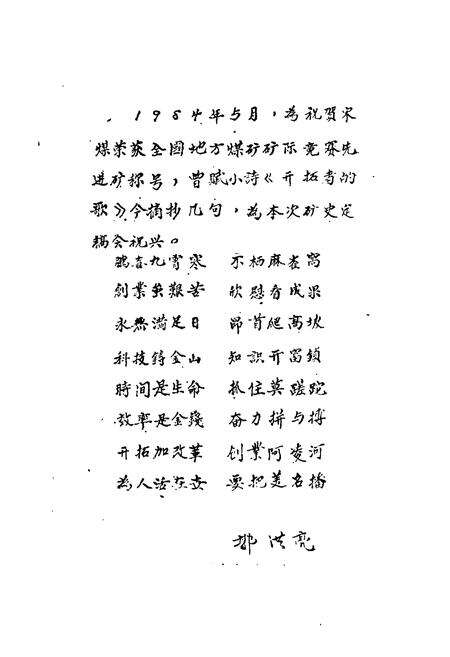 1984年5月，為祝贺宋
煤荣获全国地方煤矿矿际竞赛先
进矿称号，曾赋小詩《开拓者的
歌》今摘抄几句，為本次矿史定
稿会祝兴。
鹏喜九霄寒　不栖麻雀窩
創業虽艱苦　欣慰有成果
永無满足日　昂首爬高坡
科技鋳金山　知識开富鎖
時间是生命　抓住莫蹉跎
效率是金錢　奋力拼与搏
开拓加改革　创業阿凌河
為人活在世　要把美名播
洪亮